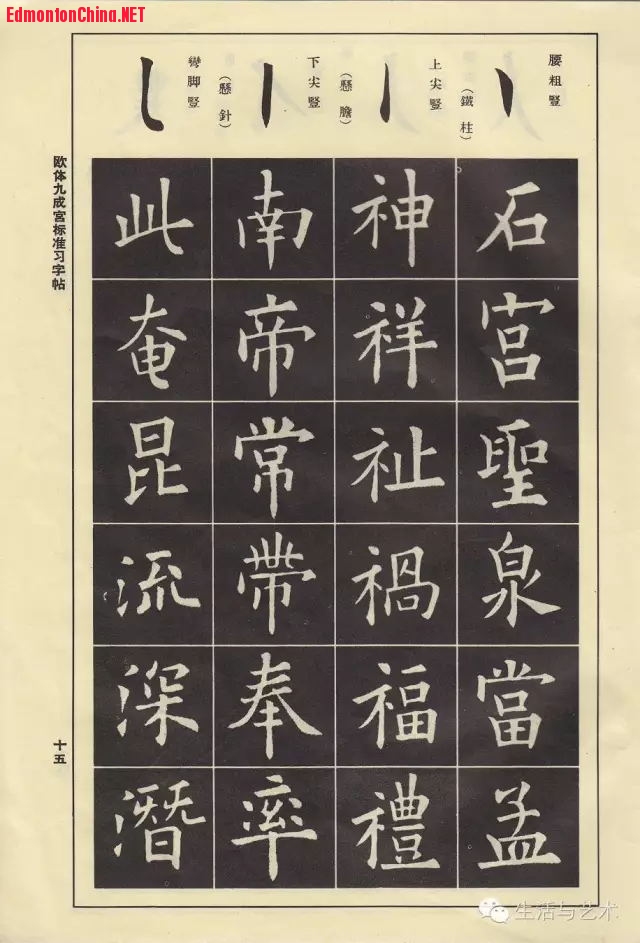 EdmontonChina.NET
腰粗豎
（鐵柱）
上尖豎
（懸膽）
下尖豎
（懸針）
彎脚豎
石宫聖泉當孟
神祥祉禍福禮
南帝常帶奉率
此奄昆流深潛
欧体九成宫标准习字帖
十五
生活与艺术